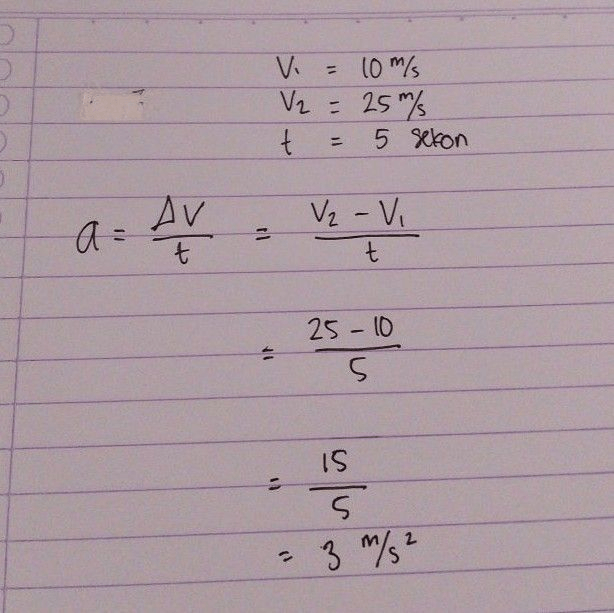 V₁ = 10 m/s
V₂ = 25 m/s
t = 5 sekon
a = ΔV/t = V₂ - V₁/t
= 25 - 10/5
= 15/5
= 3 m/s²